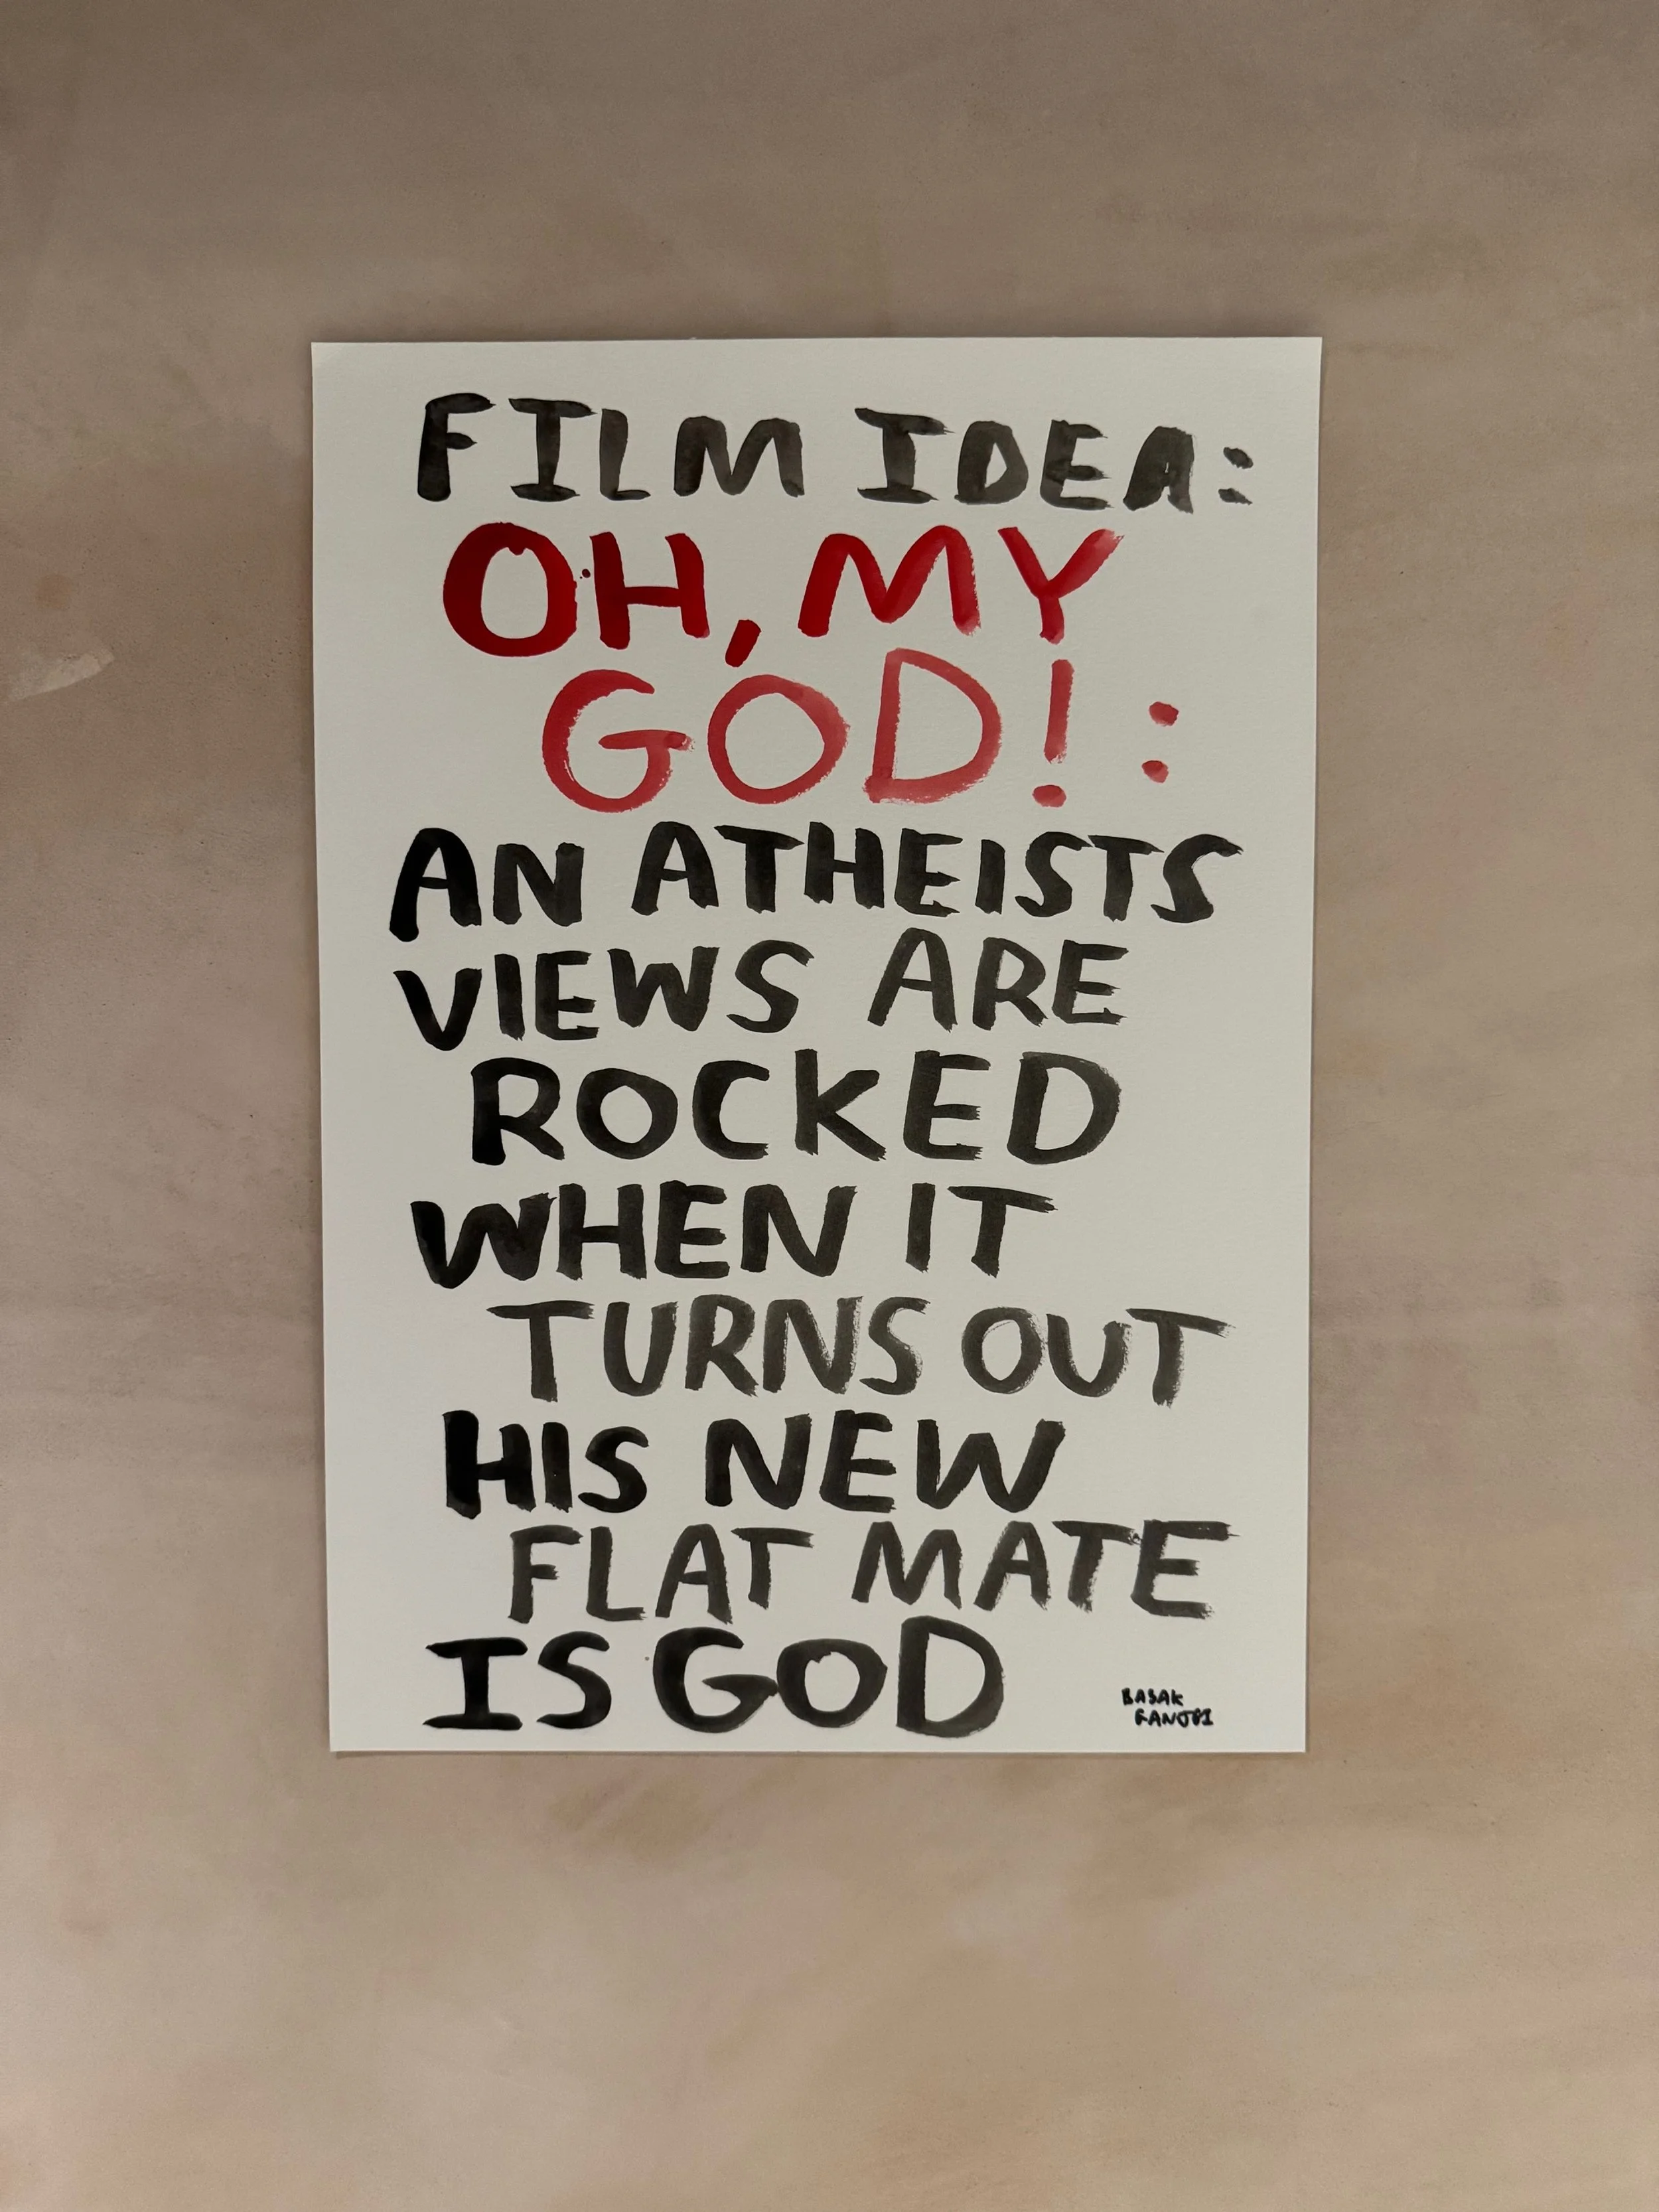 FILM IDEA:
OH, MY
GOD! :
AN ATHEISTS
VIEWS ARE
ROCKED
WHEN IT
TURNS OUT
HIS NEW
FLAT MATE
IS GOD
BASAK